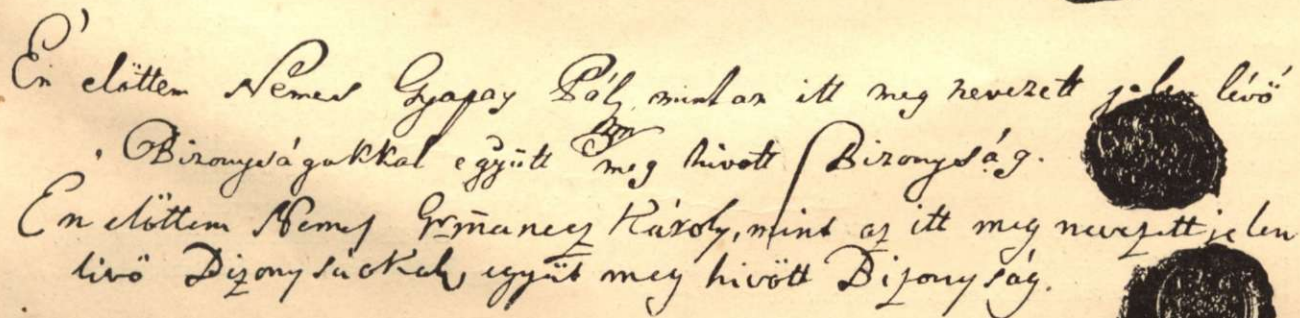 Én előttem Nemes Gyapay Pál, mint az itt meg nevezett jelen lévő
Bizonyságokkal együtt meg hivott Bizonyság.
En előttem Nemes Károly, mint az itt meg nevezett jelen
livő együtt meg hivött Bizonyság.